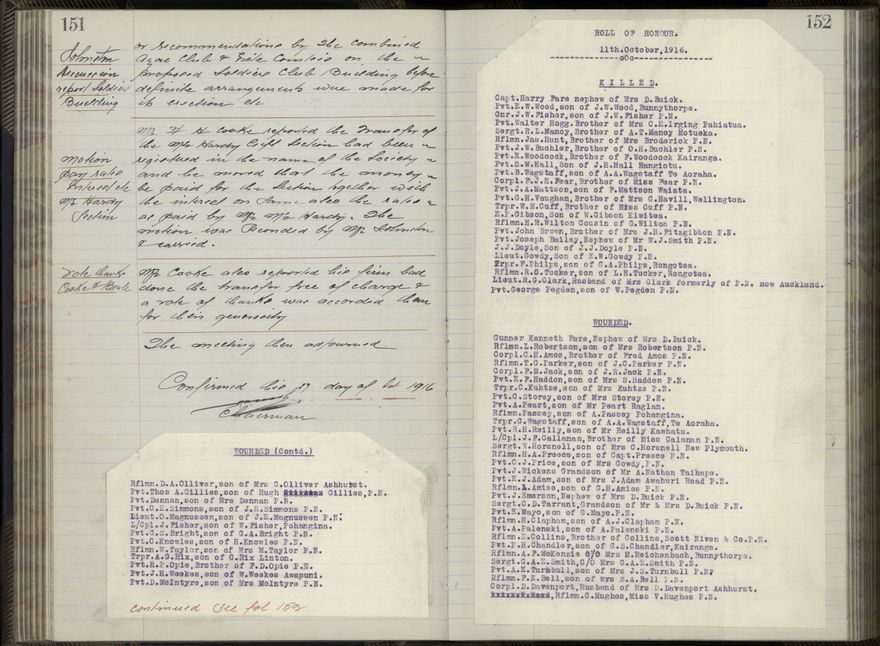 151
Johnston
discussion
report Soldiers
Building
or recommendations by the Combined
Club & Fete Comtee on the
proposed Soldiers Club Building before
definite arrangements were made for
its erection etc
motion
pay
Interest etc
Mr Hardy
Section
Mr H Cooke reported the Transfer of
the Mr Hardy Gift Section had been
registered in the name of the Society
and he moved that the money
be paid for the Section together with
the interest on same also the rates
as paid by Mr Mr Hardy. The
motion was seconded by Mr Johnston
& carried.
Vote thanks
Cooke &
Mr Cooke also reported his firm had
done the transfer free of charge &
a vote of thanks was accorded them
for their generosity
The meeting then adjourned
Confirmed this 17 day of Oct 1916
Chairman
WOUNDED (Contd.)
Rflmn.D.A.Olliver,son of Mrs G.Olliver Ashhurst.
Pvt.Thos A.Gillies,son of Hugh Gillies,P.N.
Pvt.Dennan,son of Mrs Dennan P.N.
Pvt.C.E.Simmons,son of J.H.Simmons P.N.
Lieut.O.Magnussen,son of J.E.Magnussen P.N.
L/Cpl.J.Fisher,son of W.Fisher,Pohangina.
Pvt.G.S.Bright,son of G.A.Bright P.N.
Pvt.C.Knowles,son of H.Knowles P.N.
Rflmn.W.Taylor,son of Mrs M.Taylor P.N.
Trpr.A.G.Rix,son of G.Rix Linton.
Pvt.H.P.Opie,Brother of F.D.Opie P.N.
Pvt.J.H.Weekes,son of W.Weekes Awapuni.
Pvt.D.McIntyre,son of Mrs McIntyre P.N.
continued See fol 152
152
ROLL OF HONOUR.
11th.October,1916.
---------------oOo---------------
KILLED.
Capt.Harry Fare nephew of Mrs D.Buick.
Pvt.E.W.Wood,son of J.W.Wood,Bunnythorpe.
Gnr.J.W.Fisher,son of J.W.Fisher P.N.
Pvt.Walter Hogg.Brother of Mrs C.E.Irging Pahiatua.
Sergt.R.L.Manoy,Brother of A.T.Manoy Motueka.
Rflmn.Jas.Hunt,Brother of Mrs Broderick P.N.
Pvt.J.W.Buchler,Brother of O.H.Buchler P.N.
Pvt.E.Woodcock,Brother of F.Woodcock Kairanga.
Pvt.S.M.Hall,Son of J.H.Hall Rangiotu.
Pvt.B.Wagstaff,son of A.A.Wagstaff Te Aoraha.
Corpl.F.J.E.Fear,Brother of Miss Fear P.N.
Pvt.J.A.Mattson,son of F.Mattson Waiata.
Pvt.G.H.Vaughan,Brother of Mrs G.Havill,Wellington.
Trpr.W.H.Cuff,Brother of Miss Cuff P.N.
E.P.Gibson,Son of W.Gibson Kiwitea.
Rflmn.H.R.Wilton Cousin of G.Wilton P.N.
Pvt.John Brown,Brother of Mrs J.H.Fitzgibbon P.N.
Pvt.Joseph Bailey,Nephew of Mr W.J.Smith P.N.
J.J.Doyle,Son of J.J.Doyle P.N.
Lieut.Gowdy,Son of E.W.Gowdy P.N.
Trpr.F.Philps,son of C.A.Philps,Rongotea.
Rflmn.R.G.Tucker,son of L.R.Tucker,Rongotea.
Lieut.R.G.Clark,Husband of Mrs Clark formerly of P.N. now Auckland.
Pvt.George Pegden,son of W.Pegden P.N.
WOUNDED.
Gunner Kenneth Fare,Nephew of Mrs D.Buick.
Rflmn.L.Robertson,son of Mrs Robertson P.N.
Corpl.C.H.Amos,Brother of Fred Amos P.N.
Rflmn.T.G.Parker,son of J.C.Parker P.N.
Corpl.F.M.Jack,son of J.H.Jack P.N.
Pvt.E.F.Haddon,son of Mrs S.Haddon P.N.
Trpr.C.Kuhtze,son of Mrs Kuhtze P.N.
Pvt.C.Storey,son of Mrs Storey P.N.
Pvt.A.Peart,son of Mr Peart Raglan.
Rflmn.Passey,son of A.Passey Pohangina.
Trpr.C.Wagstaff,son of A.A.Wagstaff,Te Aoraha.
Pvt.R.H.Reilly,son of Mr Reilly Kawhatu.
L/Cpl.J.F.Callanan,Brother of Miss Calanan P.N.
Sergt.W.Horsnell,son of Mrs C.Horsnell New Plymouth.
Rflmn.H.A.Preece,son of Capt.Preece P.N.
Pvt.C.J.Price,son of Mrs Gowdy,P.N.
Pvt.J.Hickens Grandson of Mr A.Nathan Taihape.
Pvt.E.J.Adam,son of Mrs J.Adam Awahuri Road P.N.
Rflmn.L.Amies,son of G.H.Amies P.N.
Pvt.J.Emerson,Nephew of Mrs D.Buick P.N.
Sergt.C.D.Tarrant,Grandson of Mr & Mrs D.Buick P.N.
Pvt.E.Mayo,son of G.Mayo,P.N.
Rflmn.H.Clapham,son of A.J.Clapham P.N.
Pvt.A.Palenski,son of A.Palenski P.N.
Rflmn.E.Collins,Brother of Collins,Scott Niven & Co.P.N.
Pvt.P.H.Chandler,son of G.S.Chandler,Kairanga.
Rflmn.A.F.McKenzie C/O Mrs E.Reichenbach,Bunnythorpe.
Sergt.G.A.E.Smith,C/O Mrs G.A.E.Smith P.N.
Pvt.A.E.Turnbull,son of Mrs J.S.Turnbull P.N.
Rflmn.P.E.Bell,son of Mrs M.A.Bell P.N.
Corpl.D.Davenport,Husband of Mrs D.Davenport Ashhurst.
Rflmn.C.Hughes,Miss V.Hughes P.N.